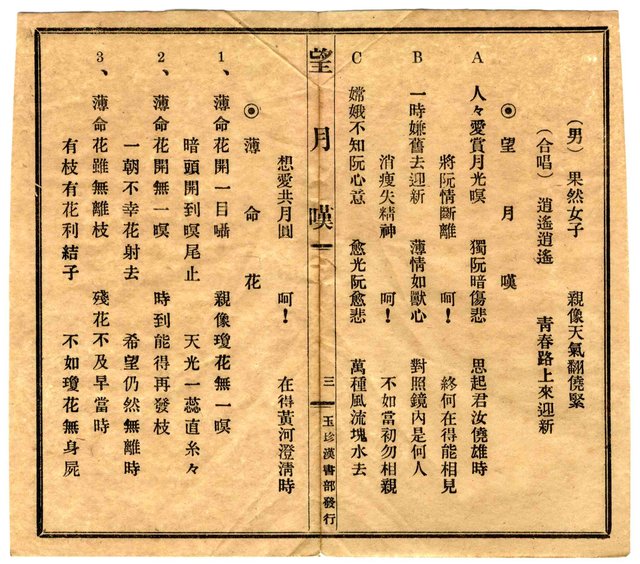 (男) 果然女子 親像天氣翻僥緊
(合唱) 逍遙逍遙 青春路上來迎新
◉望月嘆
A 人々愛賞月光暝 獨阮暗傷悲 思起君汝僥雄時
將阮情斷離 呵! 終何在得能相見
B 一時嫌舊去迎新 薄情如獸心 對照鏡內是何人
消瘦失精神 呵! 不如當初勿相親
C 嫦娥不知阮心意 愈光阮愈悲 萬種風流塊水去
想愛共月圓 呵! 在得黃河澄清時
望月嘆 三 玉珍漢書部發行
◉薄命花
1、薄命花開一目囁 親像瓊花無一暝
暗頭開到暝尾止 天光一蕊直糸々
2、薄命花開無一暝 時到能得再發枝
一朝不幸花射去 希望仍然無離時
3、薄命花雖無離枝 殘花不及早當時
有枝有花利結子 不如瓊花無身屍